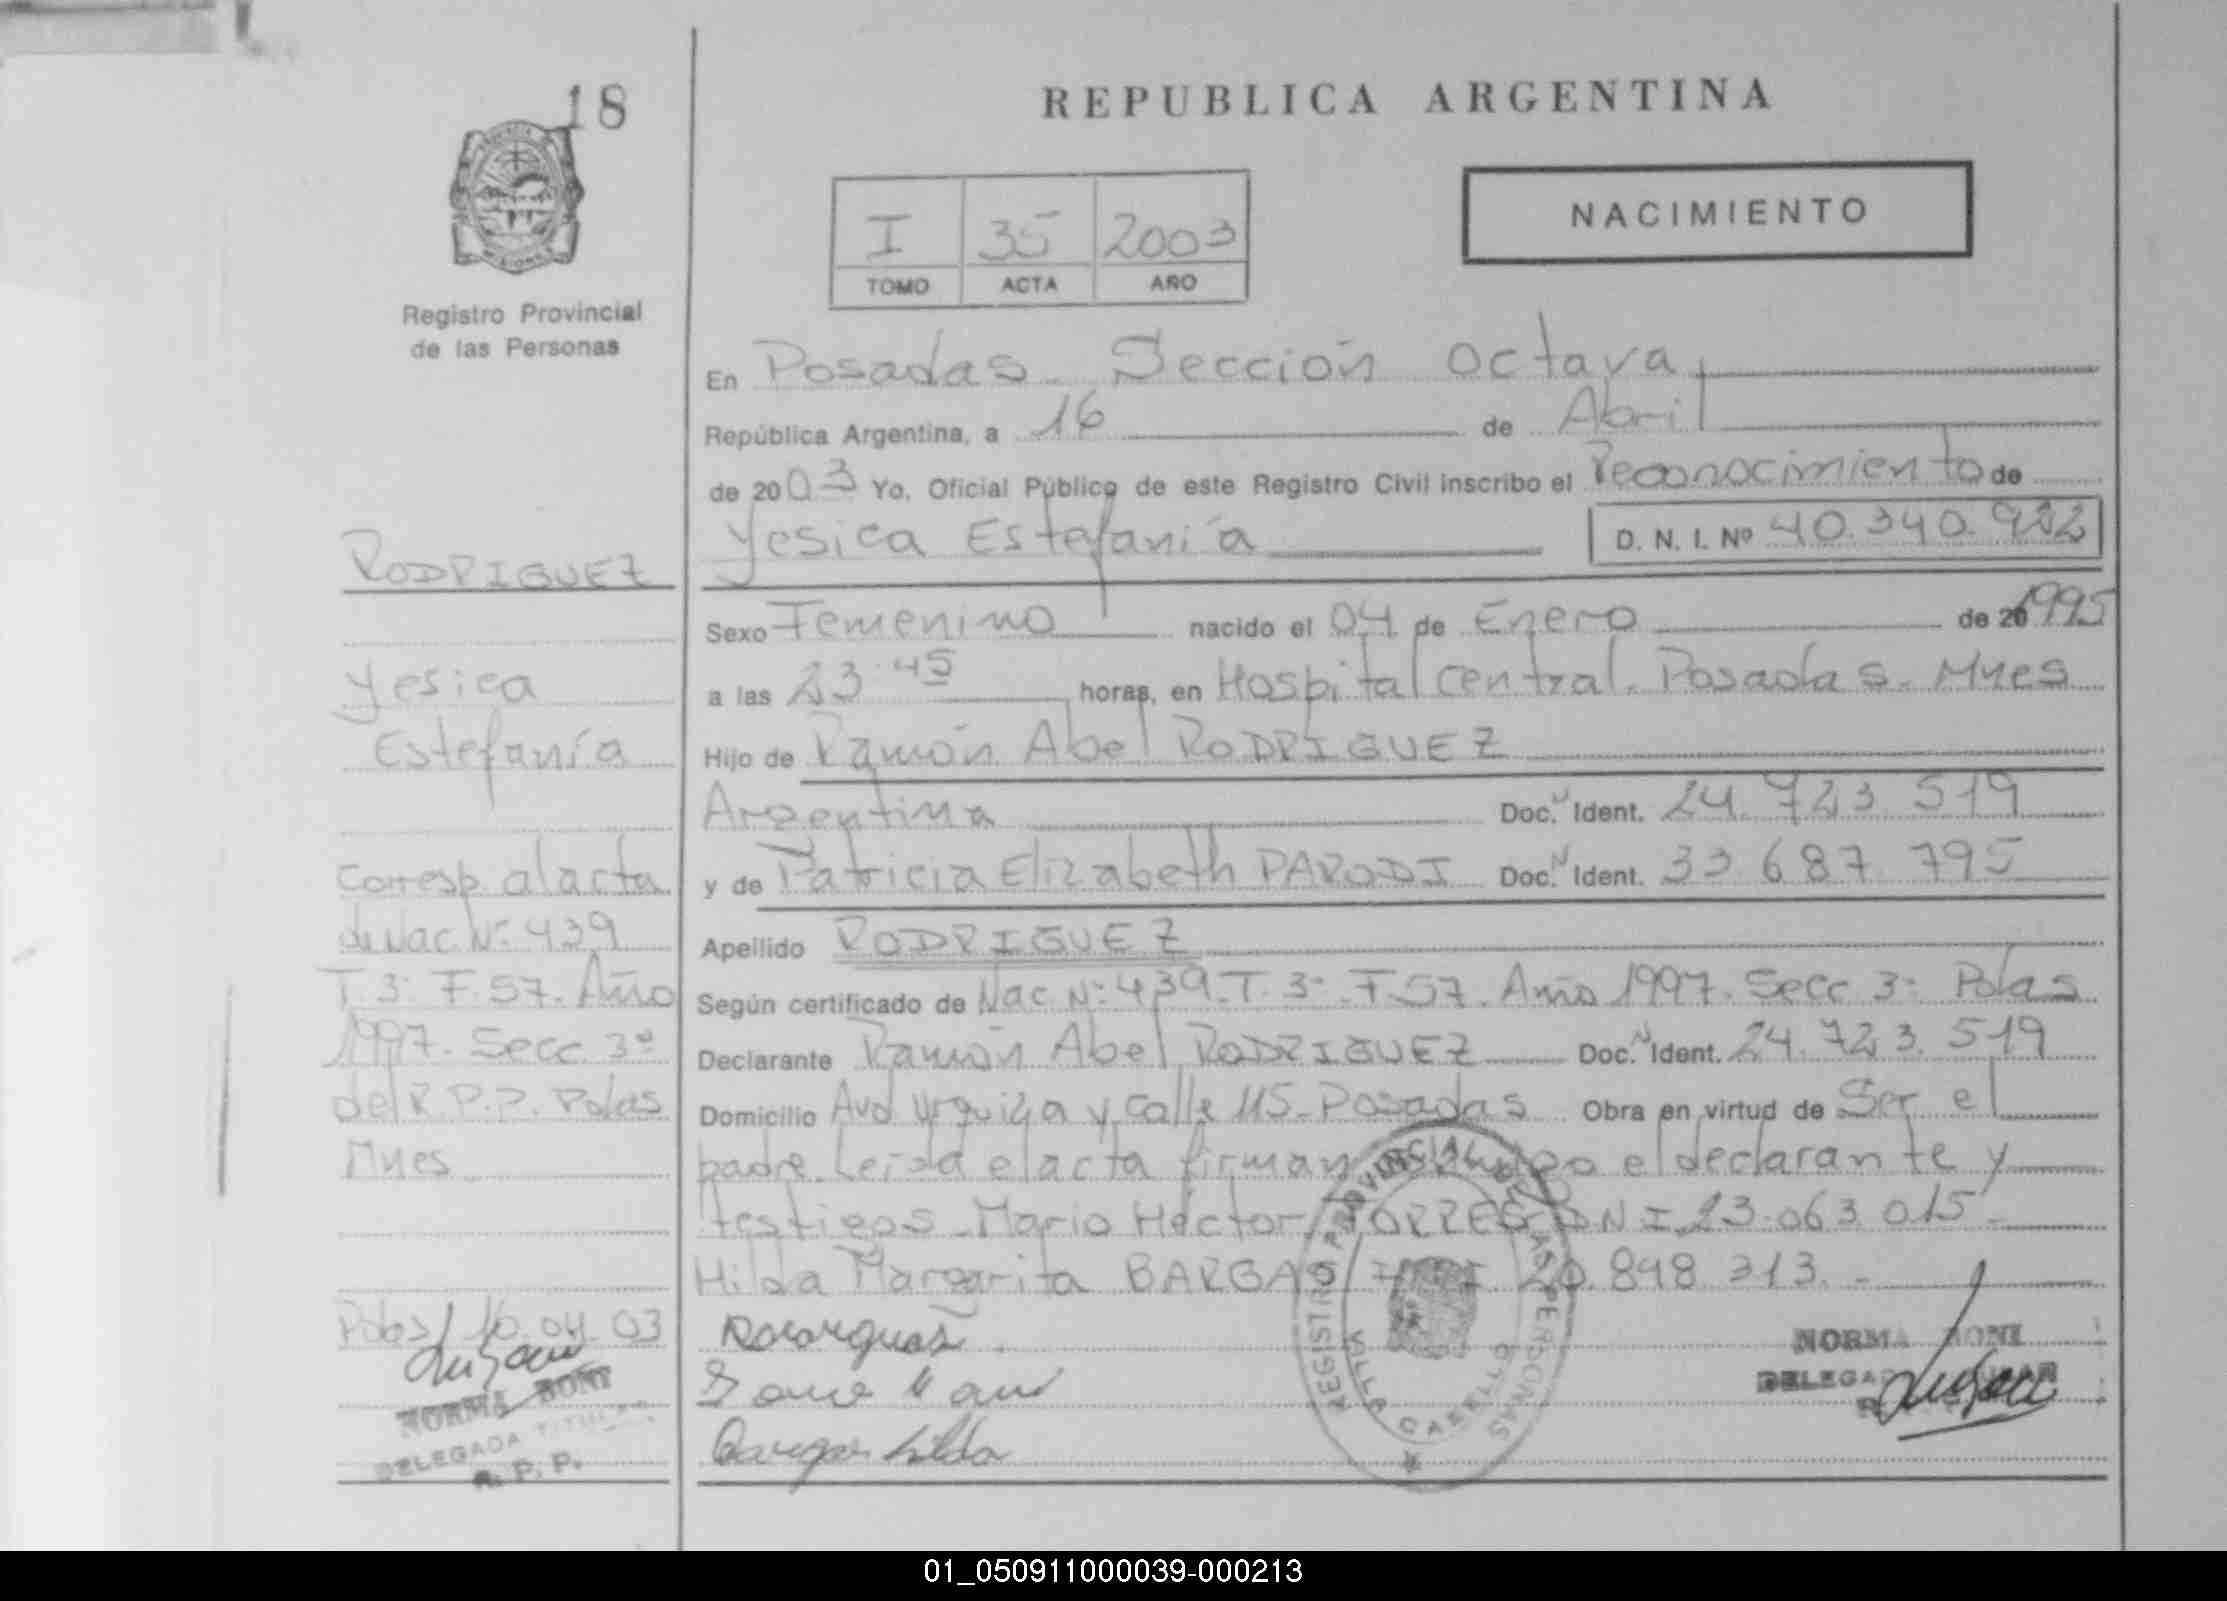 18
REPUBLICA ARGENTINA
NACIMIENTO
I 35 2003
TOMO ACTA AÑO
Registro Provincial
de las Personas
En Posadas - Sección Octava
República Argentina, a 16 de Abril
de 2003 Yo, Oficial Público de este Registro Civil inscribo el Reconocimiento de
Yesica Estefanía D. N. I. Nº 40.340.922
RODRIGUEZ
Yesica
Estefanía
Corresp. al acta
de Nac. Nº 439
T. 3º F. 57. Año
1997. Secc. 3ª
del R.P.P. Pdas
Mnes
Pdas/ 10.04.03
NORMA BONI
DELEGADA TITULAR
R. P. P.
Sexo Femenino nacido el 04 de Enero de 20 1995
a las 23.45 horas, en Hospital Central. Posadas - Mnes
Hijo de Ramón Abel RODRIGUEZ
Argentina Doc. N Ident. 24.723.519
y de Patricia Elizabeth PARODI Doc. N Ident. 33.687.795
Apellido RODRIGUEZ
Según certificado de Nac. Nº 439. T. 3º F. 57. Año 1997. Secc 3º Pdas
Declarante Ramón Abel RODRIGUEZ Doc. N Ident. 24.723.519
Domicilio Avd Urquiza y calle 115 - Posadas Obra en virtud de Ser el
padre. Leída el acta firman el declarante y
testigos - Mario Héctor TORRES DNI 23.063.015 -
Hilda Margarita BARGAS DNI 20.848.313. -
REGISTRO PROVINCIAL DE LAS PERSONAS
VILLA CABELLO
NORMA BONI
DELEGADA TITULAR
01_050911000039-000213